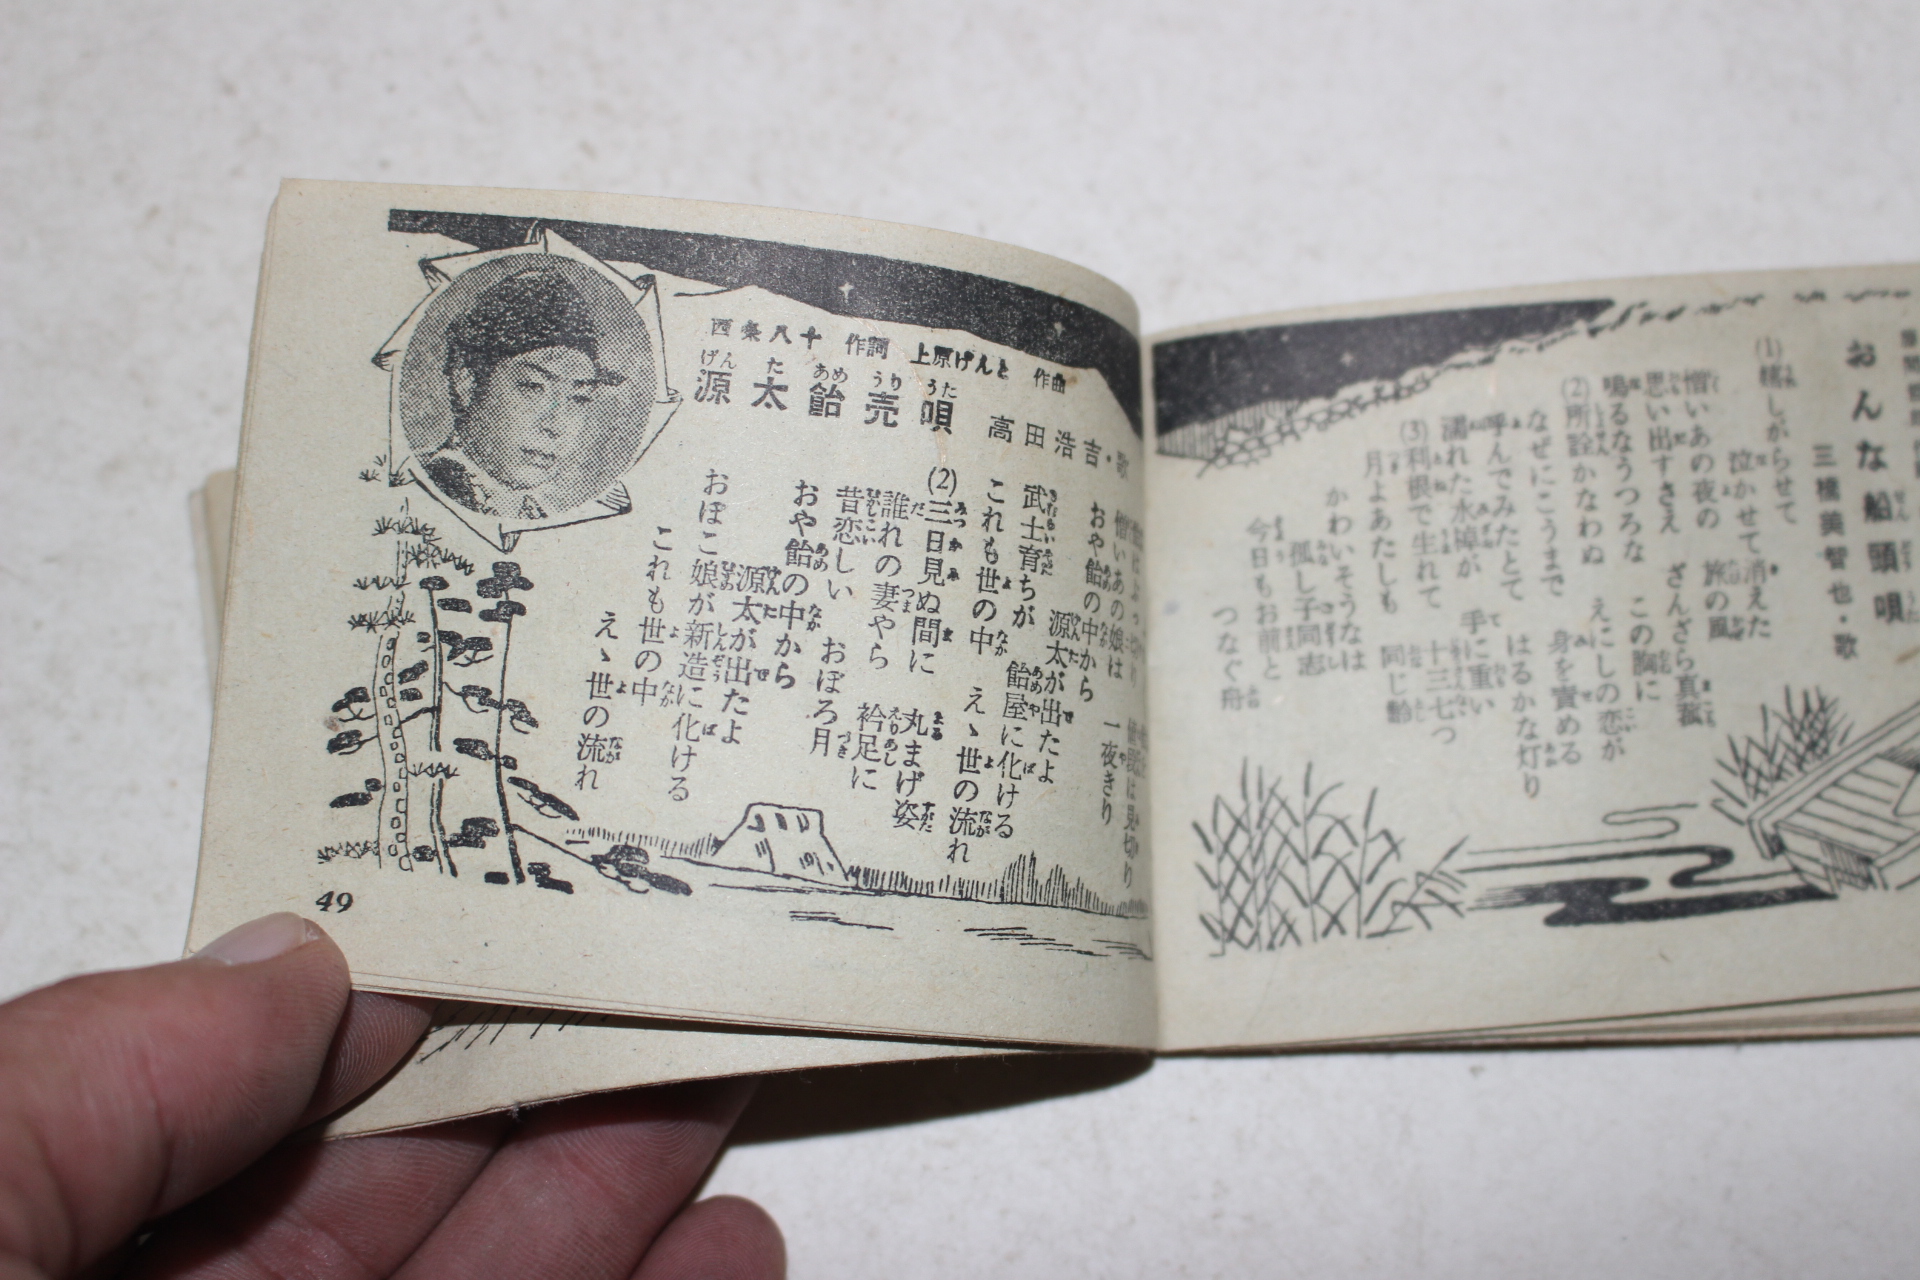 おんな船頭唄
三橋美智也・歌
(1)嬉しがらせて 泣かせて消えた
憎いあの夜の 旅の風
思い出すさえ ざんざら真菰
鳴るなうつろな この胸に
(2)所詮かなわぬ えにしの恋が
なぜにこうまで 身を責める
呼んでみたとて はるかな灯り
濡れた水棹が 手に重い
(3)利根で生れて 十三七つ
月よあたしも 同じ齢
かわいそうなは 孤し子同志
今日もお前と つなぐ舟
西条八十 作詞 上原げんと 作曲
源太飴売唄
げんたあめうりうた
高田浩吉・歌
憎いあの娘は 一夜きり
おや飴の中から 源太が出たよ
武士育ちが 飴屋に化ける
これも世の中 えゝ世の流れ
(2)三日見ぬ間に 丸まげ姿
誰れの妻やら 衿足に
昔恋しい おぼろ月
おや飴の中から 源太が出たよ
おぼこ娘が新造に化ける
これも世の中
えゝ世の流れ
49